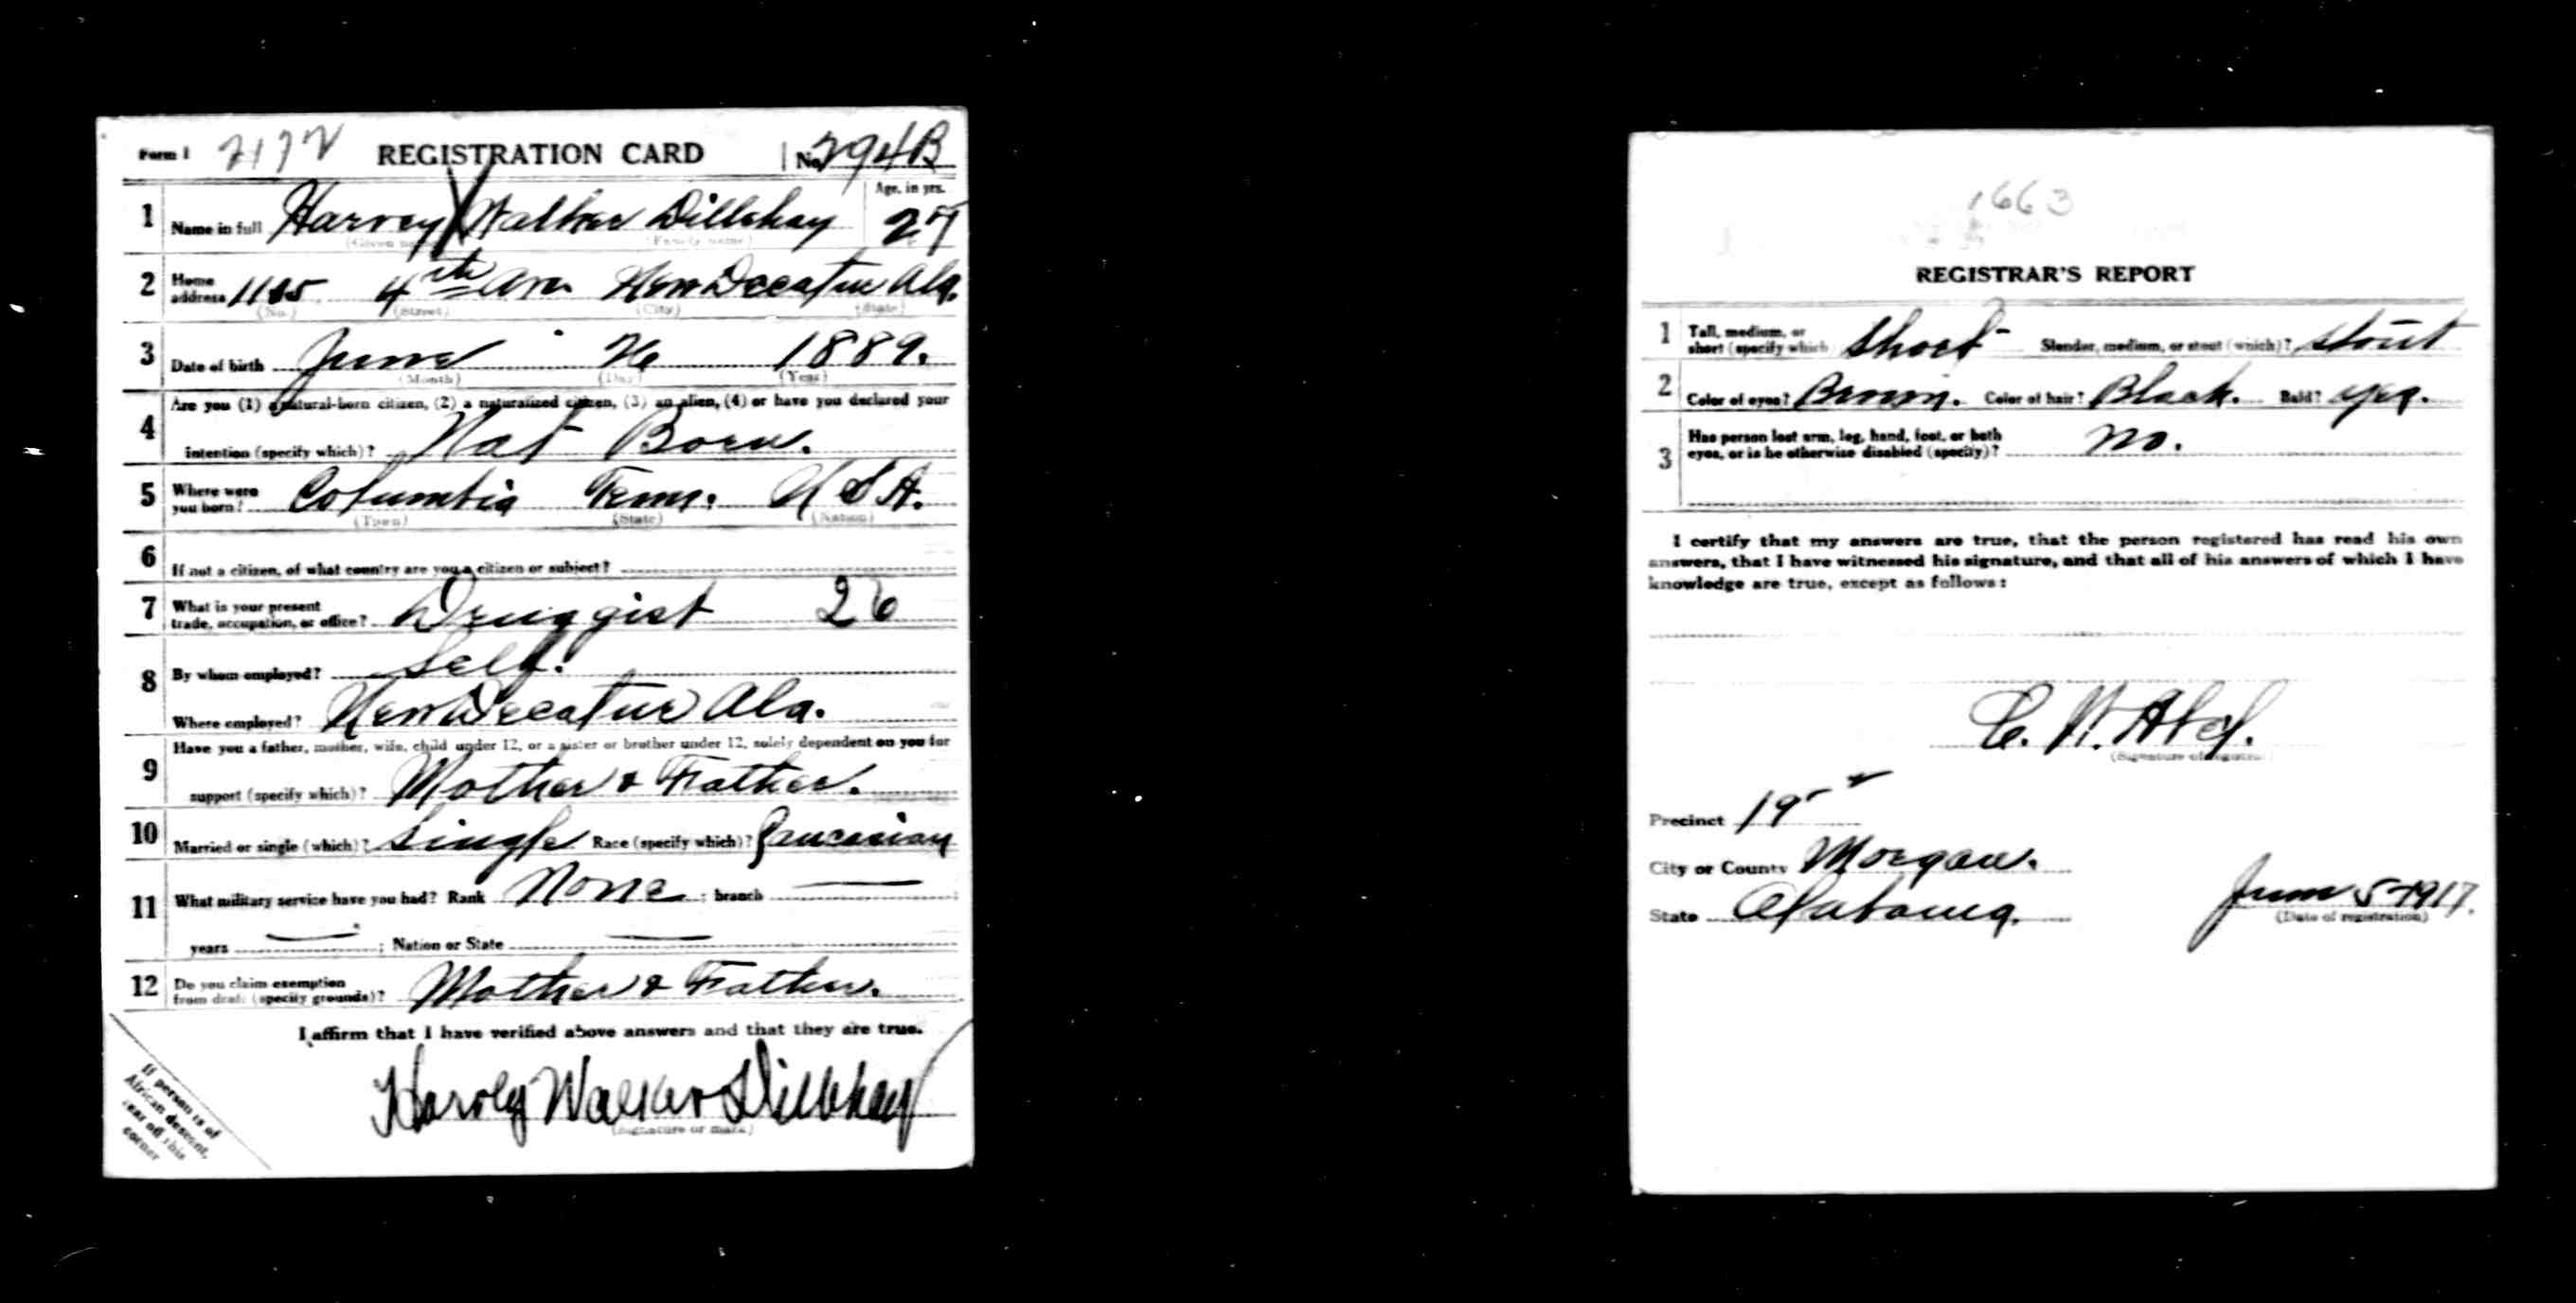 Form 1 2172 REGISTRATION CARD No. 294B
1 Name in full Harvey Walker Dillehay Age, in yrs. 27
(Given name) (Family name)
2 Home address 1105 4th Ave. New Decatur Ala.
(No.) (Street) (City) (State)
3 Date of birth June 26 1889.
(Month) (Day) (Year)
4 Are you (1) a natural-born citizen, (2) a naturalized citizen, (3) an alien, (4) or have you declared your
intention (specify which)? Nat Born.
5 Where were you born? Columbia Tenn. U S A.
(Town) (State) (Nation)
6 If not a citizen, of what country are you a citizen or subject?
7 What is your present trade, occupation, or office? Druggist 26
8 By whom employed? Self.
Where employed? New Decatur Ala.
9 Have you a father, mother, wife, child under 12, or a sister or brother under 12, solely dependent on you for
support (specify which)? Mother & Father.
10 Married or single (which)? Single Race (specify which)? Caucasian
11 What military service have you had? Rank None ; branch
years ; Nation or State
12 Do you claim exemption from draft (specify grounds)? Mother & Father.
I affirm that I have verified above answers and that they are true.
Harvey Walker Dillehay
(Signature or mark)
If person is of
African descent,
tear off this
corner
1663
REGISTRAR'S REPORT
1 Tall, medium, or short (specify which) Short Slender, medium, or stout (which)? Stout
2 Color of eyes? Brown. Color of hair? Black. Bald? Yes.
3 Has person lost arm, leg, hand, foot, or both eyes, or is he otherwise disabled (specify)? No.
I certify that my answers are true, that the person registered has read his own
answers, that I have witnessed his signature, and that all of his answers of which I have
knowledge are true, except as follows:
(Signature of registrar)
Precinct 19
City or County Morgan.
State Alabama. June 5-1917.
(Date of registration)